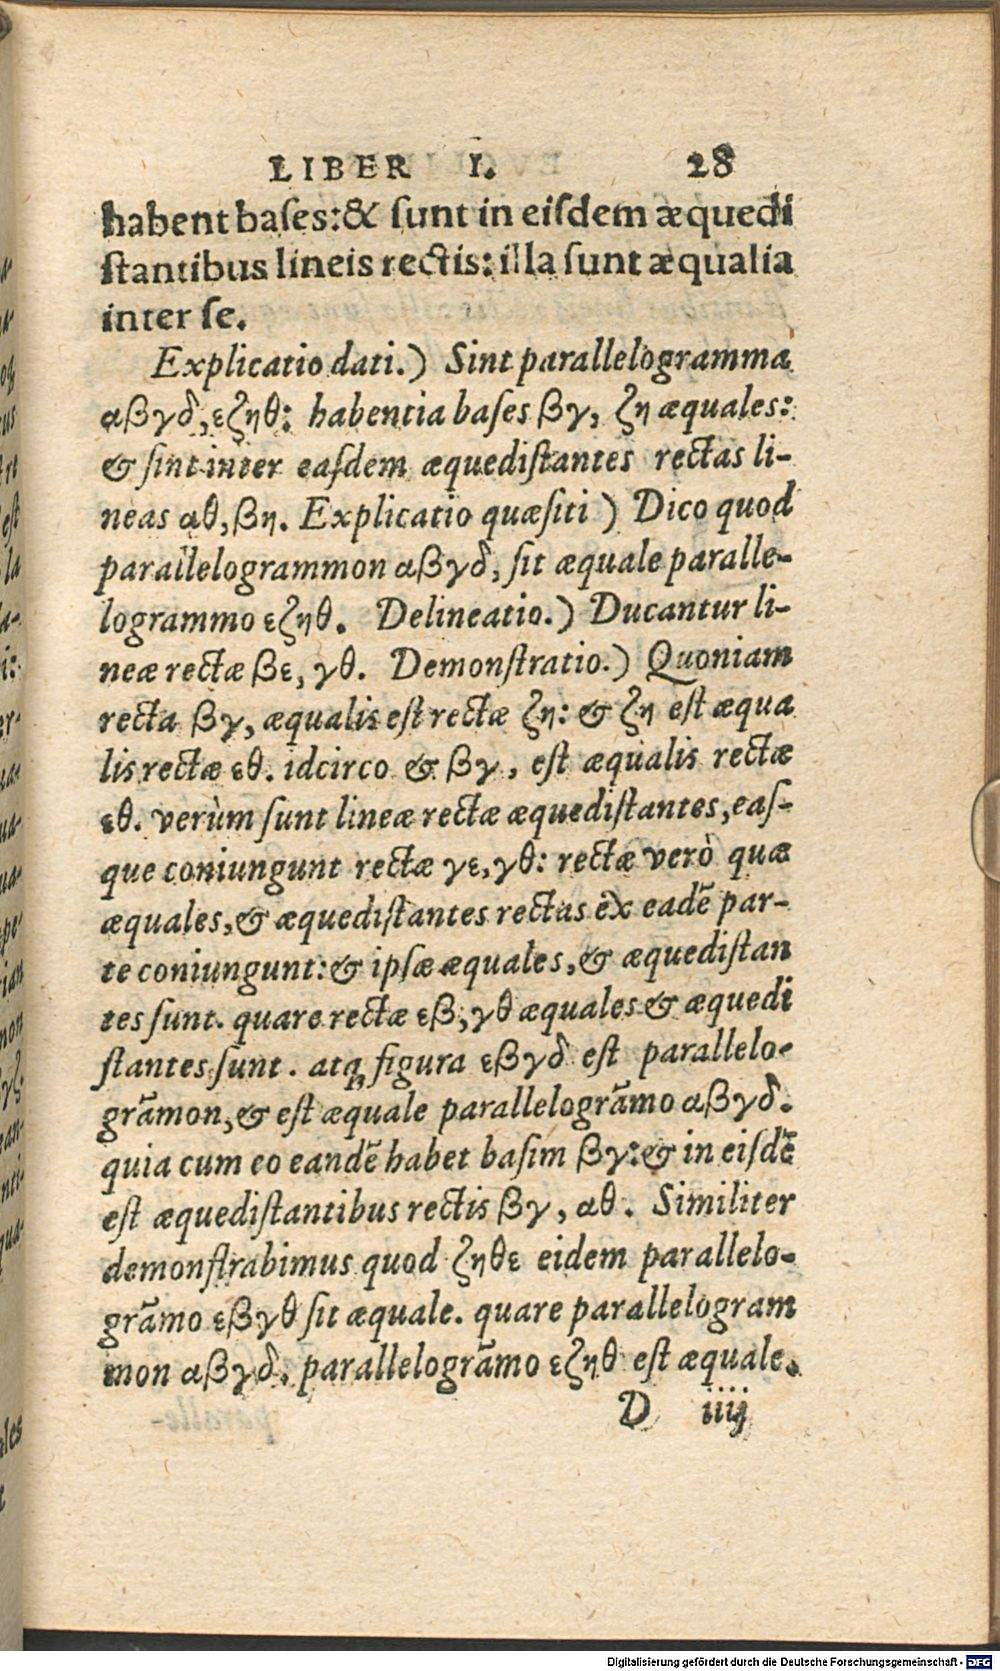 LIBER I. 28
habent bases: & ſunt in eiſdem æquedi
ſtantibus lineis rectis: illa ſunt æqualia
inter ſe.
Explicatio dati.) Sint parallelogramma
αβγδ, εζηθ: habentia baſes βγ, ζη æquales:
& ſint inter eaſdem æquediſtantes rectas li-
neas αθ, βη. Explicatio quæſiti ) Dico quod
parallelogrammon αβγδ, ſit æquale paralle-
logrammo εζηθ. Delineatio.) Ducantur li-
neæ rectæ βε, γθ. Demonſtratio.) Quoniam
recta βγ, æqualis eſt rectæ ζη: & ζη eſt æqua
lis rectæ εθ. idcirco & βγ, eſt æqualis rectæ
εθ. verùm ſunt lineæ rectæ æquediſtantes, eaſ-
que coniungunt rectæ γε, γθ: rectæ verò quæ
æquales, & æquediſtantes rectas ex eadē par-
te coniungunt: & ipſæ æquales, & æquediſtan
tes ſunt. quare rectæ εβ, γθ æquales & æquedi
ſtantes ſunt. atq; figura εβγδ eſt parallelo-
grāmon, & eſt æquale parallelogrāmo αβγδ.
quia cum eo eandē habet baſim βγ: & in eiſdē
eſt æquediſtantibus rectis βγ, αθ. Similiter
demonſtrabimus quod ζηθε eidem parallelo-
grāmo εβγθ ſit æquale. quare parallelogram
mon αβγδ. parallelogrāmo εζηθ eſt æquale.
D iiij
Digitalisierung gefördert durch die Deutsche Forschungsgemeinschaft - DFG